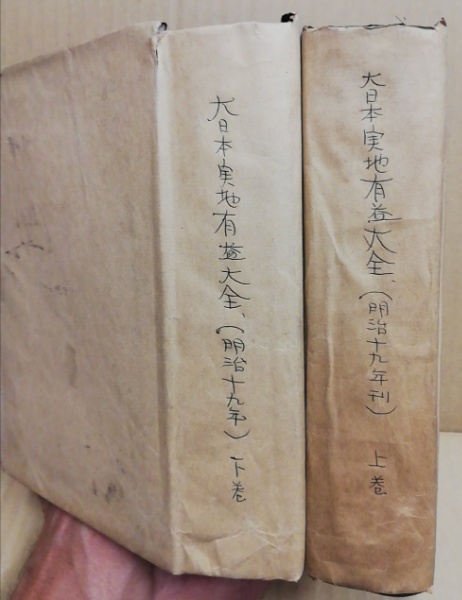 大日本実地有益大全、(明治十九年刊) 上巻
大日本実地有益大全、(明治十九年) 下巻